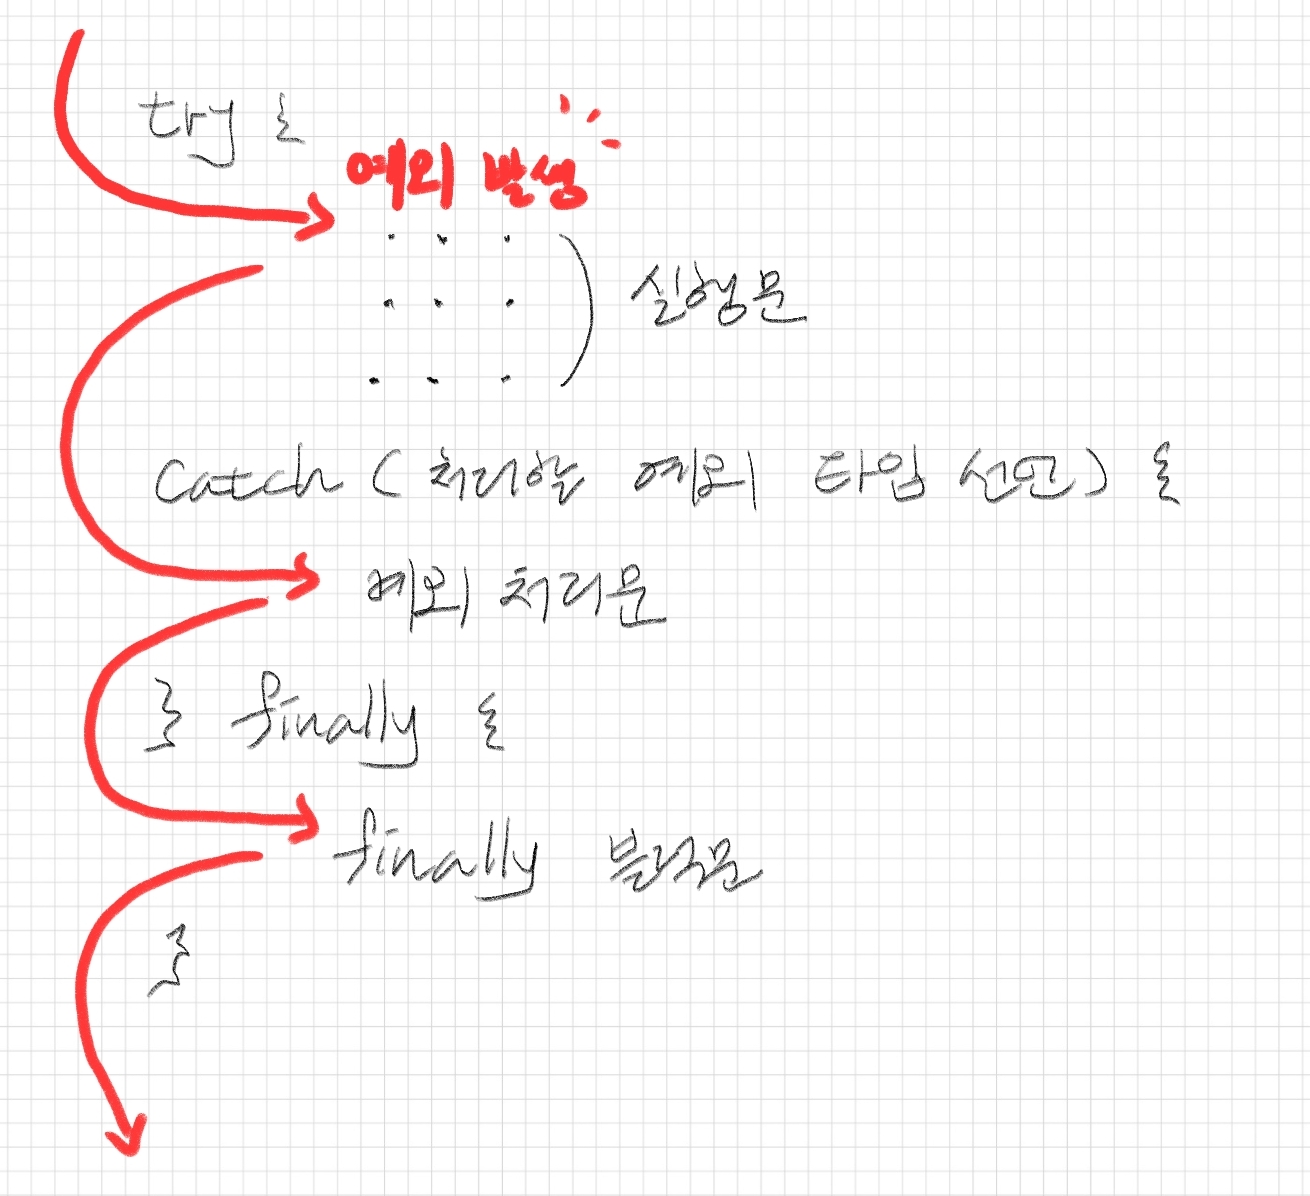 try {
예외 발생
... 
... 실행문
...
catch ( 처리할 예외 타입 선언 ) {
예외 처리문
} finally {
finally 블럭문
}